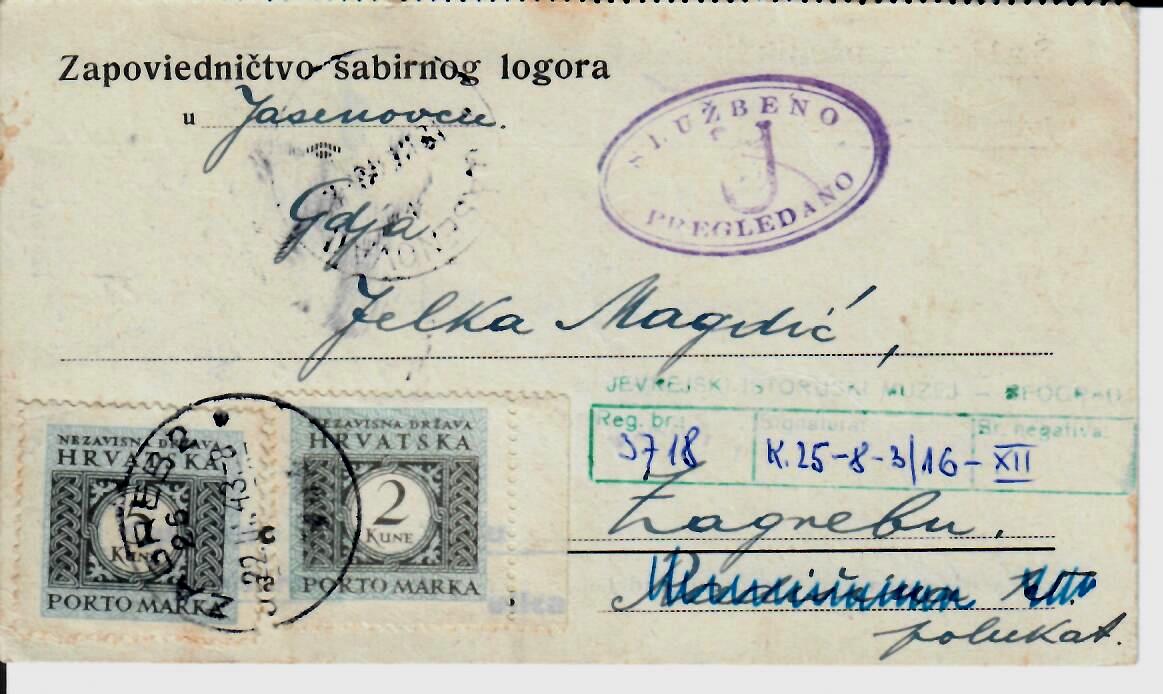 Zapoviedničtvo sabirnog logora
u Jasenovcu.
SLUŽBENO
J
PREGLEDANO
JASENOVAC
Gdja
Jelka Magdić,
JEVREJSKI ISTORIJSKI MUZEJ – BEOGRAD
Reg. br.: Signatura: Br. negativa:
3718 K.25-8-3/16- XII
NEZAVISNA DRŽAVA
HRVATSKA
2
KUNE
PORTO MARKA
NEZAVISNA DRŽAVA
HRVATSKA
2
KUNE
PORTO MARKA
ZAGREB 2
Zagrebu.
polukat.